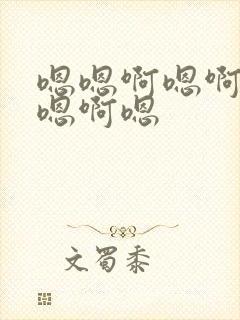 嗯嗯啊嗯啊
嗯啊嗯
文蜀黍